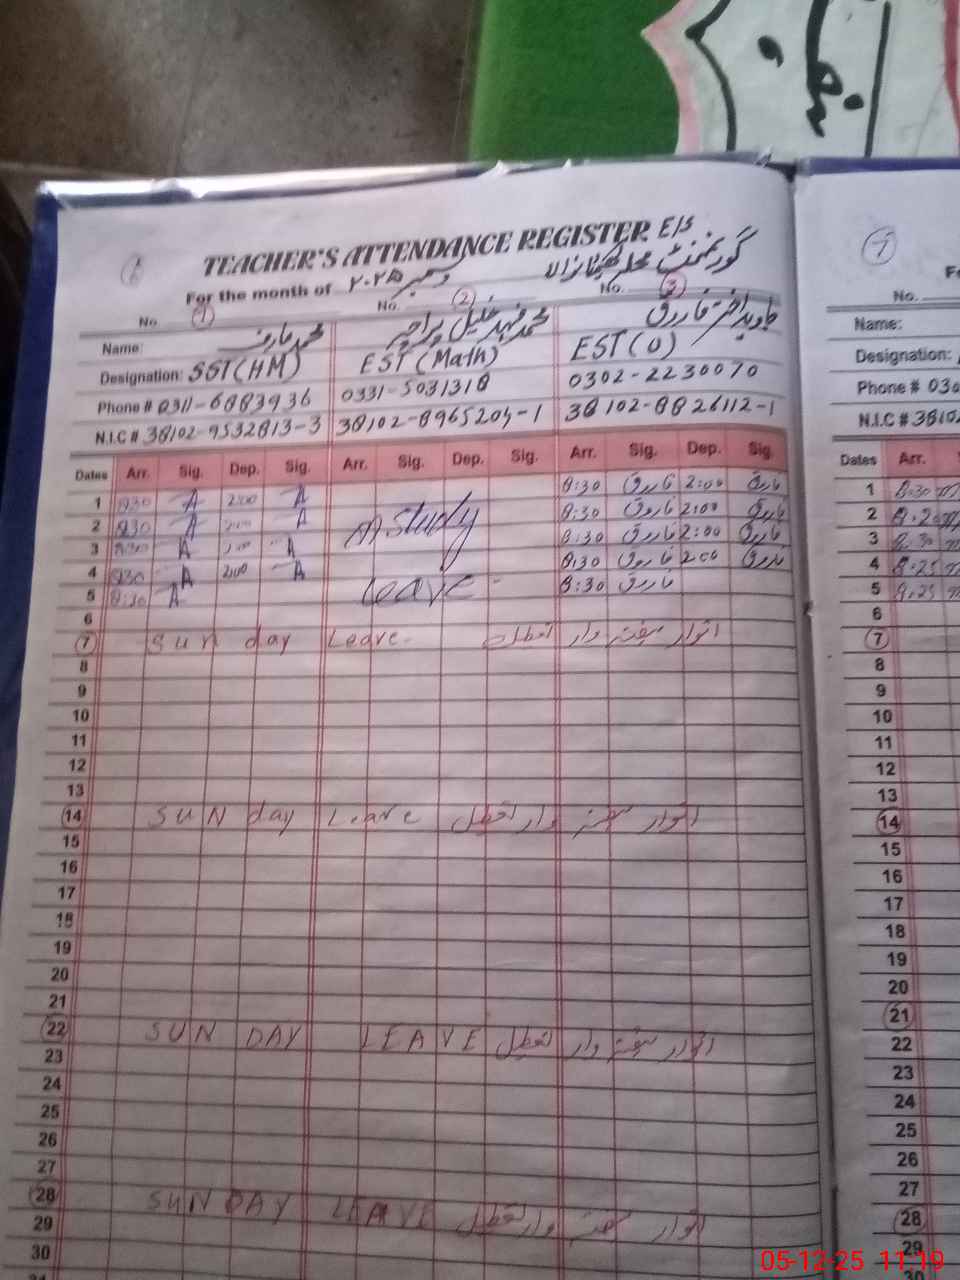 TEACHER'S ATTENDANCE REGISTER E/S
For the month of دسمبر ۲۰۲۵ گورنمنٹ محلہ
No. (1) No. (2) No. (3)
Name: محمد عارف محمد فہد خلیل پراچہ جاوید اختر فاروق
Designation: SST(HM) EST(Math) EST(O)
Phone # 0311-6883936 0331-5031318 0302-2230070
N.I.C # 38102-9532813-3 38102-8965204-1 38102-8826112-1
Dates Arr. Sig. Dep. Sig. Arr. Sig. Dep. Sig. Arr. Sig. Dep. Sig.
1 8:30 A 2:00 A 8:30 فاروق 2:00 فاروق
2 8:30 A 2:00 A study 8:30 فاروق 2:00 فاروق
3 8:30 A 2:00 A 8:30 فاروق 2:00 فاروق
4 8:30 A 2:00 A leave 8:30 فاروق 2:00 فاروق
5 8:30 A 8:30 فاروق
6
7 Sunday Leave اتوار ہفتہ وار تعطیل
8
9
10
11
12
13
14 SUNday Leave اتوار ہفتہ وار تعطیل
15
16
17
18
19
20
21
22 SUNDAY LEAVE اتوار ہفتہ وار تعطیل
23
24
25
26
27
28 SUNDAY LEAVE اتوار ہفتہ وار تعطیل
29
30
7
No.
Name:
Designation:
Phone # 030
N.I.C # 38102
Dates Arr.
1 8:30
2
3 8:30
4 8:25
5 8:25
6
7
8
9
10
11
12
13
14
15
16
17
18
19
20
21
22
23
24
25
26
27
28
29
30
05-12-25 11:19